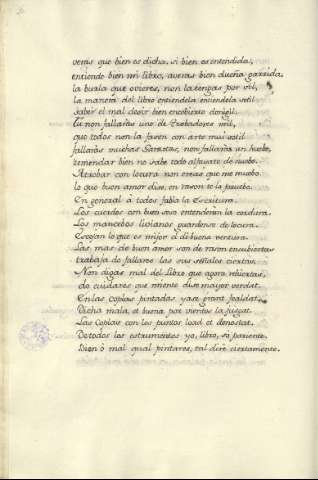 verás que bien es dicha, si bien es entendida,
entiende bien mi libro, averas bien dueña garrida.
la burla que oyeres, non la tengas por vil,
la manera del libro entiendela entiendela sotil
saber el mal desir bien encobierto doñegil.
Tu non fallarás uno de Trobadores mil,
que todos non la facen con arte muy sotil
fallarás muchas Garzetas, non fallarás un huebo,
remendar bien no sabe todo alfayate de nuebo.
A trobar con locura non creas que me muebo
lo que buen amor dise, en rason te lo pruebo.
En general a todos fabla la Escritura.
Los cuerdos con buen seso entenderán la cordura.
Los mancebos livianos guardense de locura.
Escojan lo que es mejor el de buena ventura.
Las mas de buen amor son de rason encubiertas
trabaja do fallares las sus señales ciertas.
Non digas mal del libro que agora rehiertas,
do cuidares que miente dise mayor verdat.
En las Coplas pintadas yase grant fealdat.
Dicha mala, et buena por puntos la jusgat.
Las Coplas con los puntos load et denostat.
De todos los estrumentos yo, libro, só pariente.
Bien ó mal qual pintares, tal diré ciertamente.